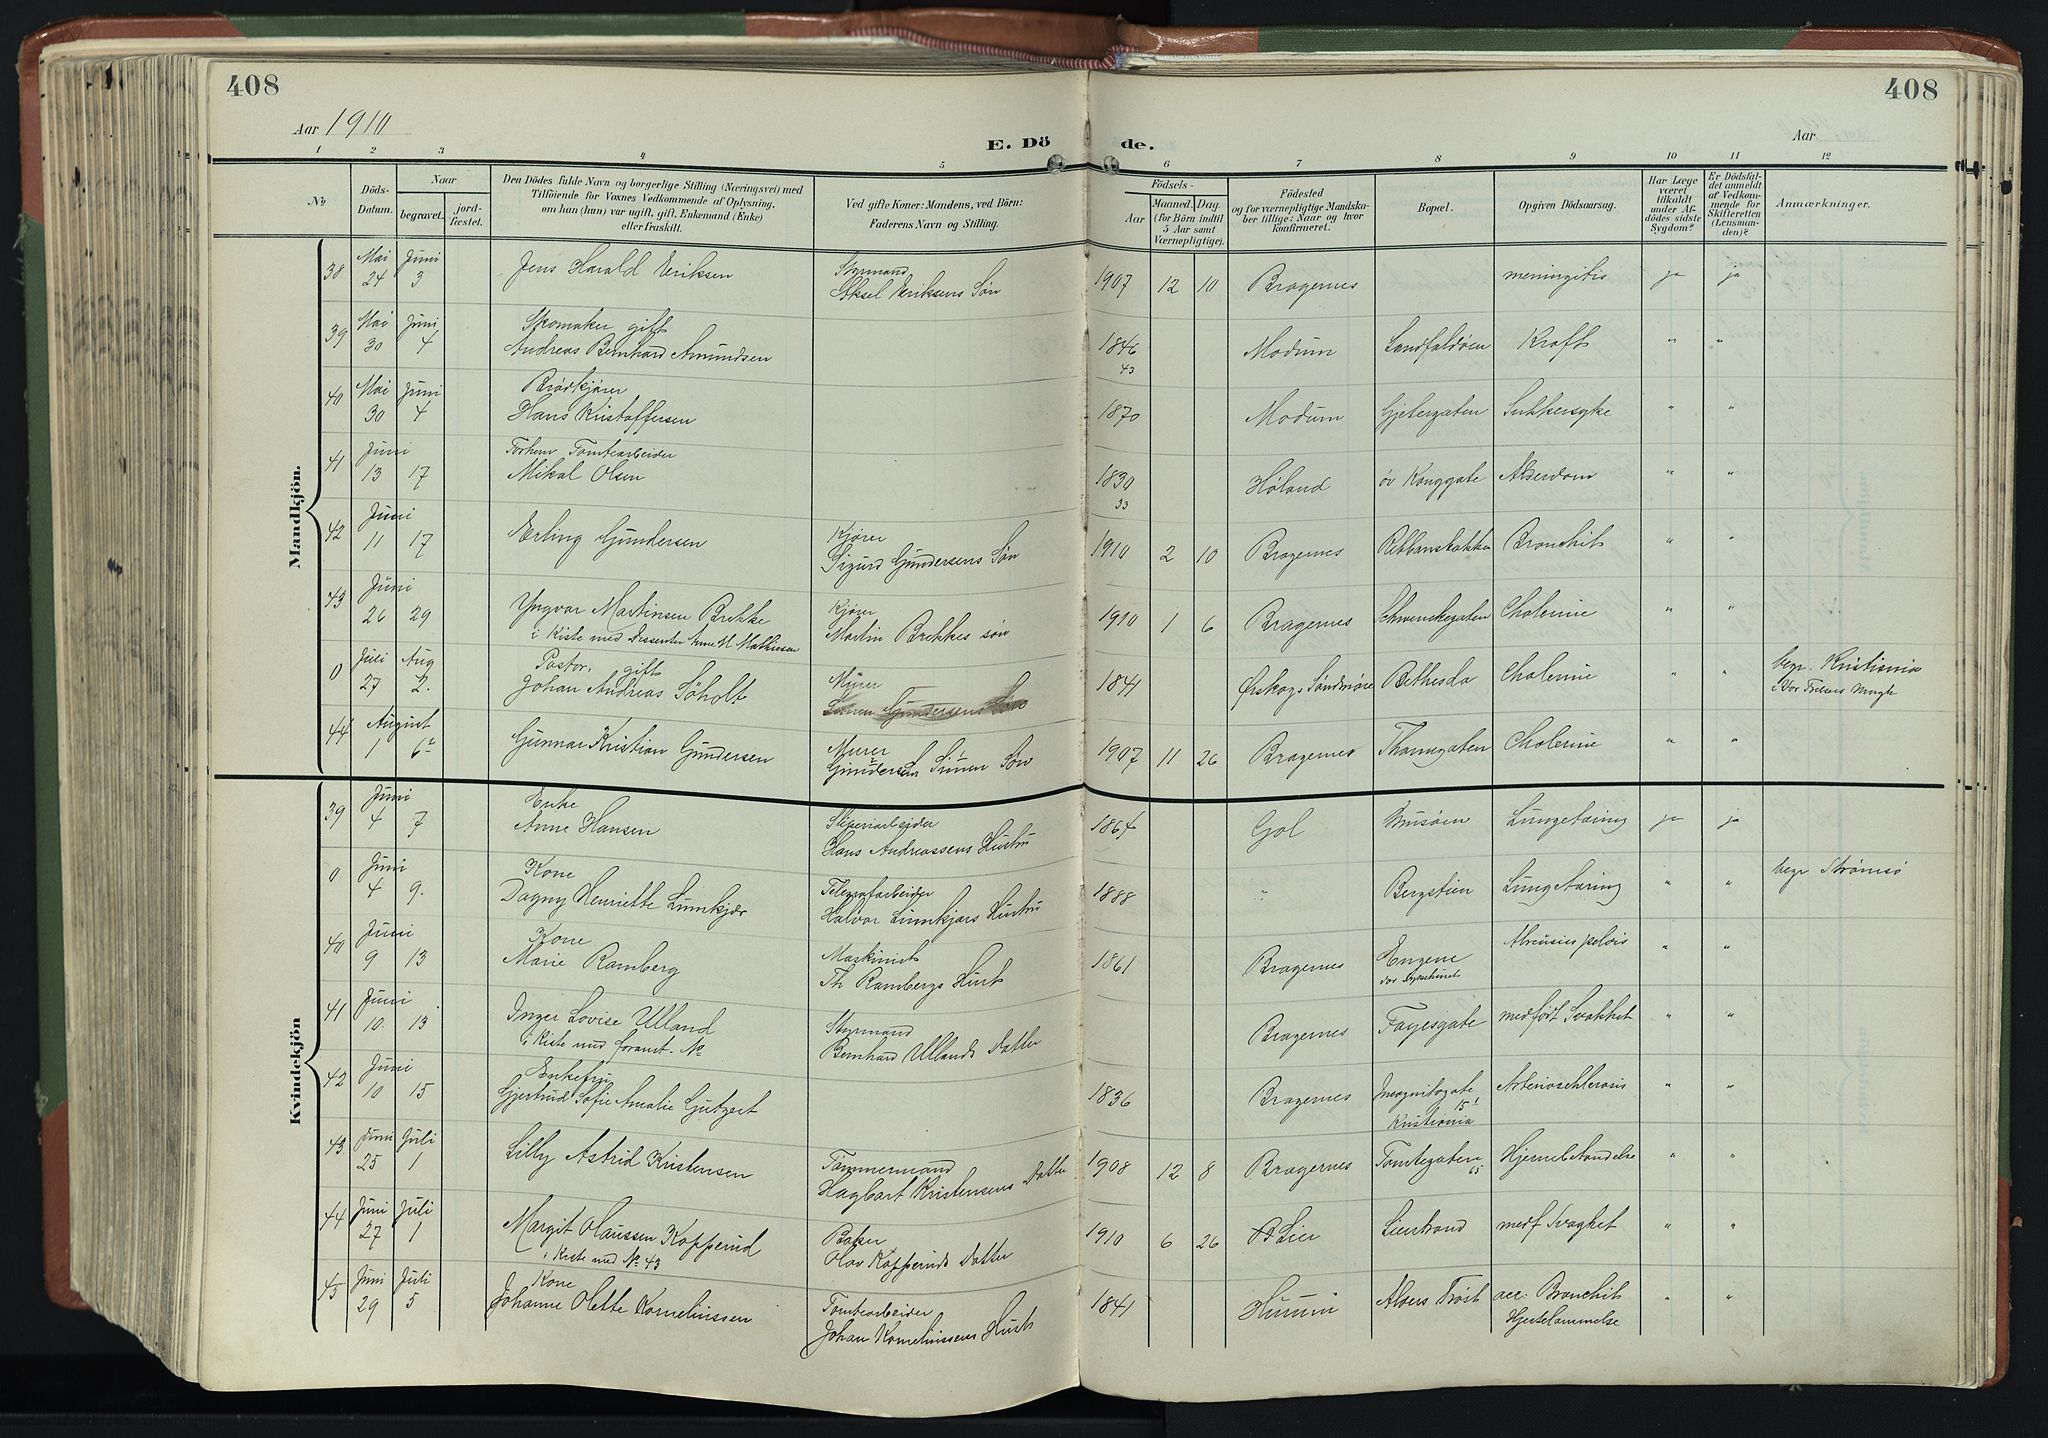 408
408
Aar 1910
Aar
E. Dö de.
1 2 3 4 5 6 7 8 9 10 11 12
No
Döds-Datum.
Naar
begravet.
jord-fæstet.
Den Dödes fulde Navn og borgerlige Stilling (Næringsvei) med
Tilföiende for Voxnes Vedkommende af Oplysning,
om han (hun) var ugift, gift, Enkemand (Enke)
eller fraskilt.
Ved gifte Koner: Mandens, ved Börn:
Faderens Navn og Stilling.
Födsels-
Aar
Maaned. Dag.
(for Börn indtil
5 Aar samt
Værnepligtige).
Födested
og for værnepligtige Mandska-
ber tillige: Naar og hvor
konfirmeret.
Bopæl.
Opgiven Dödsaarsag.
Har Læge
været
tilkaldt
under Af-
dödes sidste
Sygdom?
Er Dödsfal-
det anmeldt
af Vedkom-
mende for
Skifteretten
(Lensman-
den)?
Anmærkninger.
Mandkjön.
38 Mai 24 Juni 3 Jens Harald Eriksen Styrmand
Aksel Eriksens Søn 1907 12 10 Bragernes meningitis ja ja
39 Mai 30 Juni 4 Skomaker gift
Andreas Bernhard Amundsen 1846 Modum Landfaldøen Kræft " "
43
40 Mai 30 Juni 4 Brødkjører
Hans Kristoffersen 1870 Modum Gjetergaten Sukkersyke " "
41 Juni 13 17 Forhenv Tomtearbeider
Mikal Olsen 1830 Høland øv Konggate Alderdom " "
33
42 Juni 11 17 Erling Gundersen Kjører
Sigurd Gundersens Søn 1910 2 10 Bragernes Ribbanskakken Bronchit " "
43 Juni 26 29 Yngvar Martinsen Brekke Kjører
i Kiste med Dissenter Anne M Mathiesen Martin Brekkes søn 1910 1 6 Bragernes Schwenckegaten Cholerine " "
0 Juli 27 Aug 2. Pastor, gift
Johan Andreas Søholt Murer
Simen Gundersens Søn 1841 Ørskog, Søndmøre Bethesda Cholerine " " begr. Kristiania
i Vor Frelsers
44 August 1 6 Gunnar Kristian Gundersen Murer
Gundersen Simen Søn 1907 11 26 Bragernes Thamsgaten Cholerine " "
Kvindekjön
39 Juni 4 7 Enke
Anne Hansen Sliperiarbeider
Hans Andreassens Hustru 1864 Gol Brusøen Lungetæring ja ja
0 Juni 4 9. Kone
Dagny Henriette Lunnkjær Telegrafarbeider
Halvor Lunnkjærs Hustru 1888 " Bergstien Lungetæring " " begr Strømsø
40 Juni 9 13 Kone
Marie Ramberg Maskinist
Th Rambergs Hust 1861 Bragernes Engene pelvis " "
41 Juni 10. 13 Inger Lovise Ulland Styrmand
i Kiste med foranst. No Bernhard Ullands Datter Bragernes Fayesgate medfødt Svakhet " "
42 Juni 10 15 Enkefru
Gjertrud Sofie Amalie Gutzert 1836 Bragernes Incognitogate
15 I
Kristiania Arteriosclerosis " "
43 Juni 25 Juli 1 Lilly Astrid Kristensen Tømmermand
Hagbart Kristensens Datter 1908 12 8 Bragernes Tomtegaten
65 Hjernebetændelse " "
44 Juni 27 Juli 1 Margit Olaussen Kopperud Baker
i Kiste med No 43 Olav Kopperuds Datter 1910 6 26 Lier Lierstrand medf Svaghet " "
45 Juni 29 Juli 5 Kone
Johanne Olette Kornelinssen Tomtearbeider
Johan Kornelinssens Hust 1841 Hurum Alvers Trøst acc: Bronchit
Hjertelammelse " "